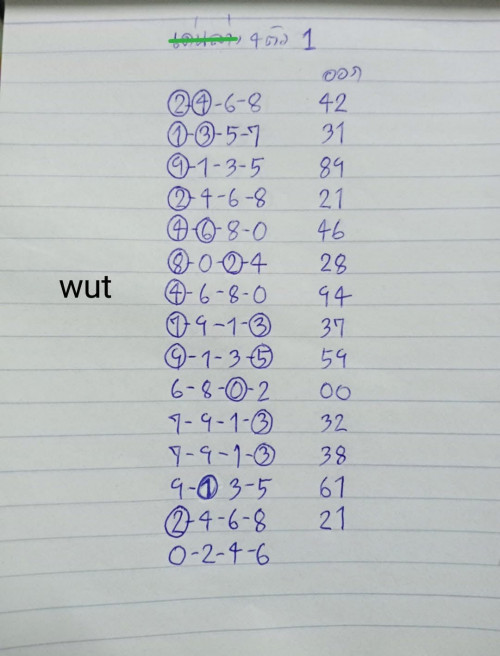 4ตัว 1
ออก
2-4-6-8 42
1-3-5-7 31
9-1-3-5 89
2-4-6-8 21
4-6-8-0 46
8-0-2-4 28
wut
4-6-8-0 94
7-9-1-3 37
9-1-3-5 59
6-8-0-2 00
7-9-1-3 32
7-9-1-3 38
9-1 3-5 61
2-4-6-8 21
0-2-4-6